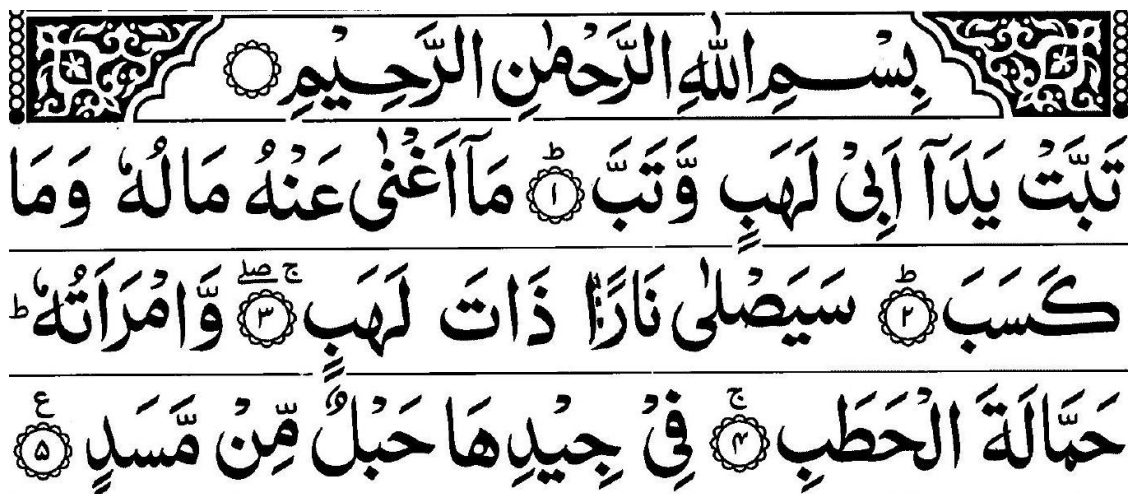 بِسْــمِ اللّٰهِ الرَّحْمٰنِ الرَّحِيْمِ
تَبَّتْ يَدَآ اَبِیْ لَهَبٍ وَّ تَبَّ ؕ۝۱ مَاۤ اَغْنٰی عَنْهُ مَالُهٗ وَ مَا
كَسَبَ ؕ۝۲ سَيَصْلٰی نَارًا ذَاتَ لَهَبٍ ۚۖ۝۳ وَّ امْرَاَتُهٗ ؕ
حَمَّالَةَ الْحَطَبِ ۚ۝۴ فِیْ جِيْدِهَا حَبْلٌ مِّنْ مَّسَدٍ ۝۵ ع